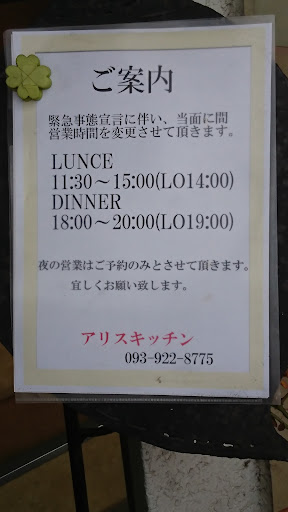 ご案内
緊急事態宣言に伴い、当面に間
営業時間を変更させて頂きます。
LUNCE
11:30～15:00(LO14:00)
DINNER
18:00～20:00(LO19:00)
夜の営業はご予約のみとさせて頂きます。
宜しくお願い致します。
アリスキッチン
093-922-8775